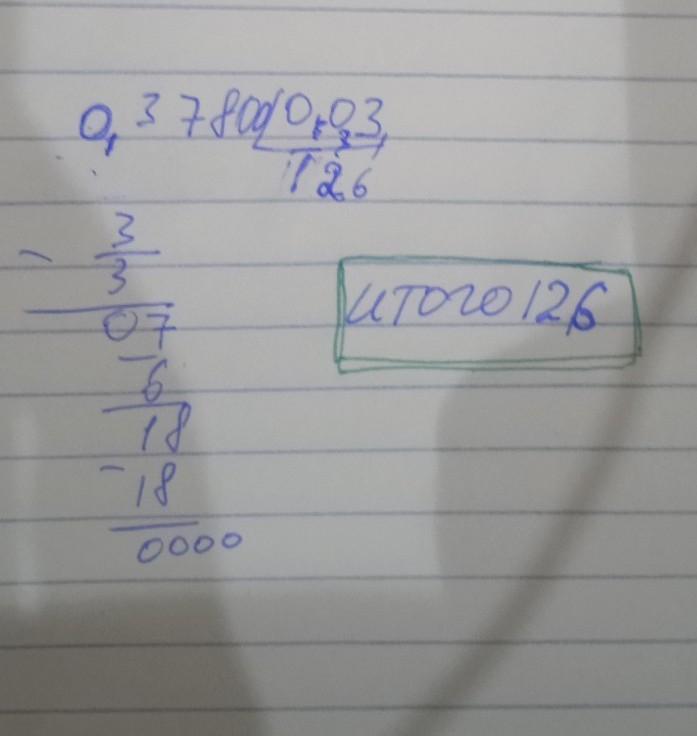 0,37800 0,03
126
- 3
3
07
- 6
18
- 18
0000
итого 126